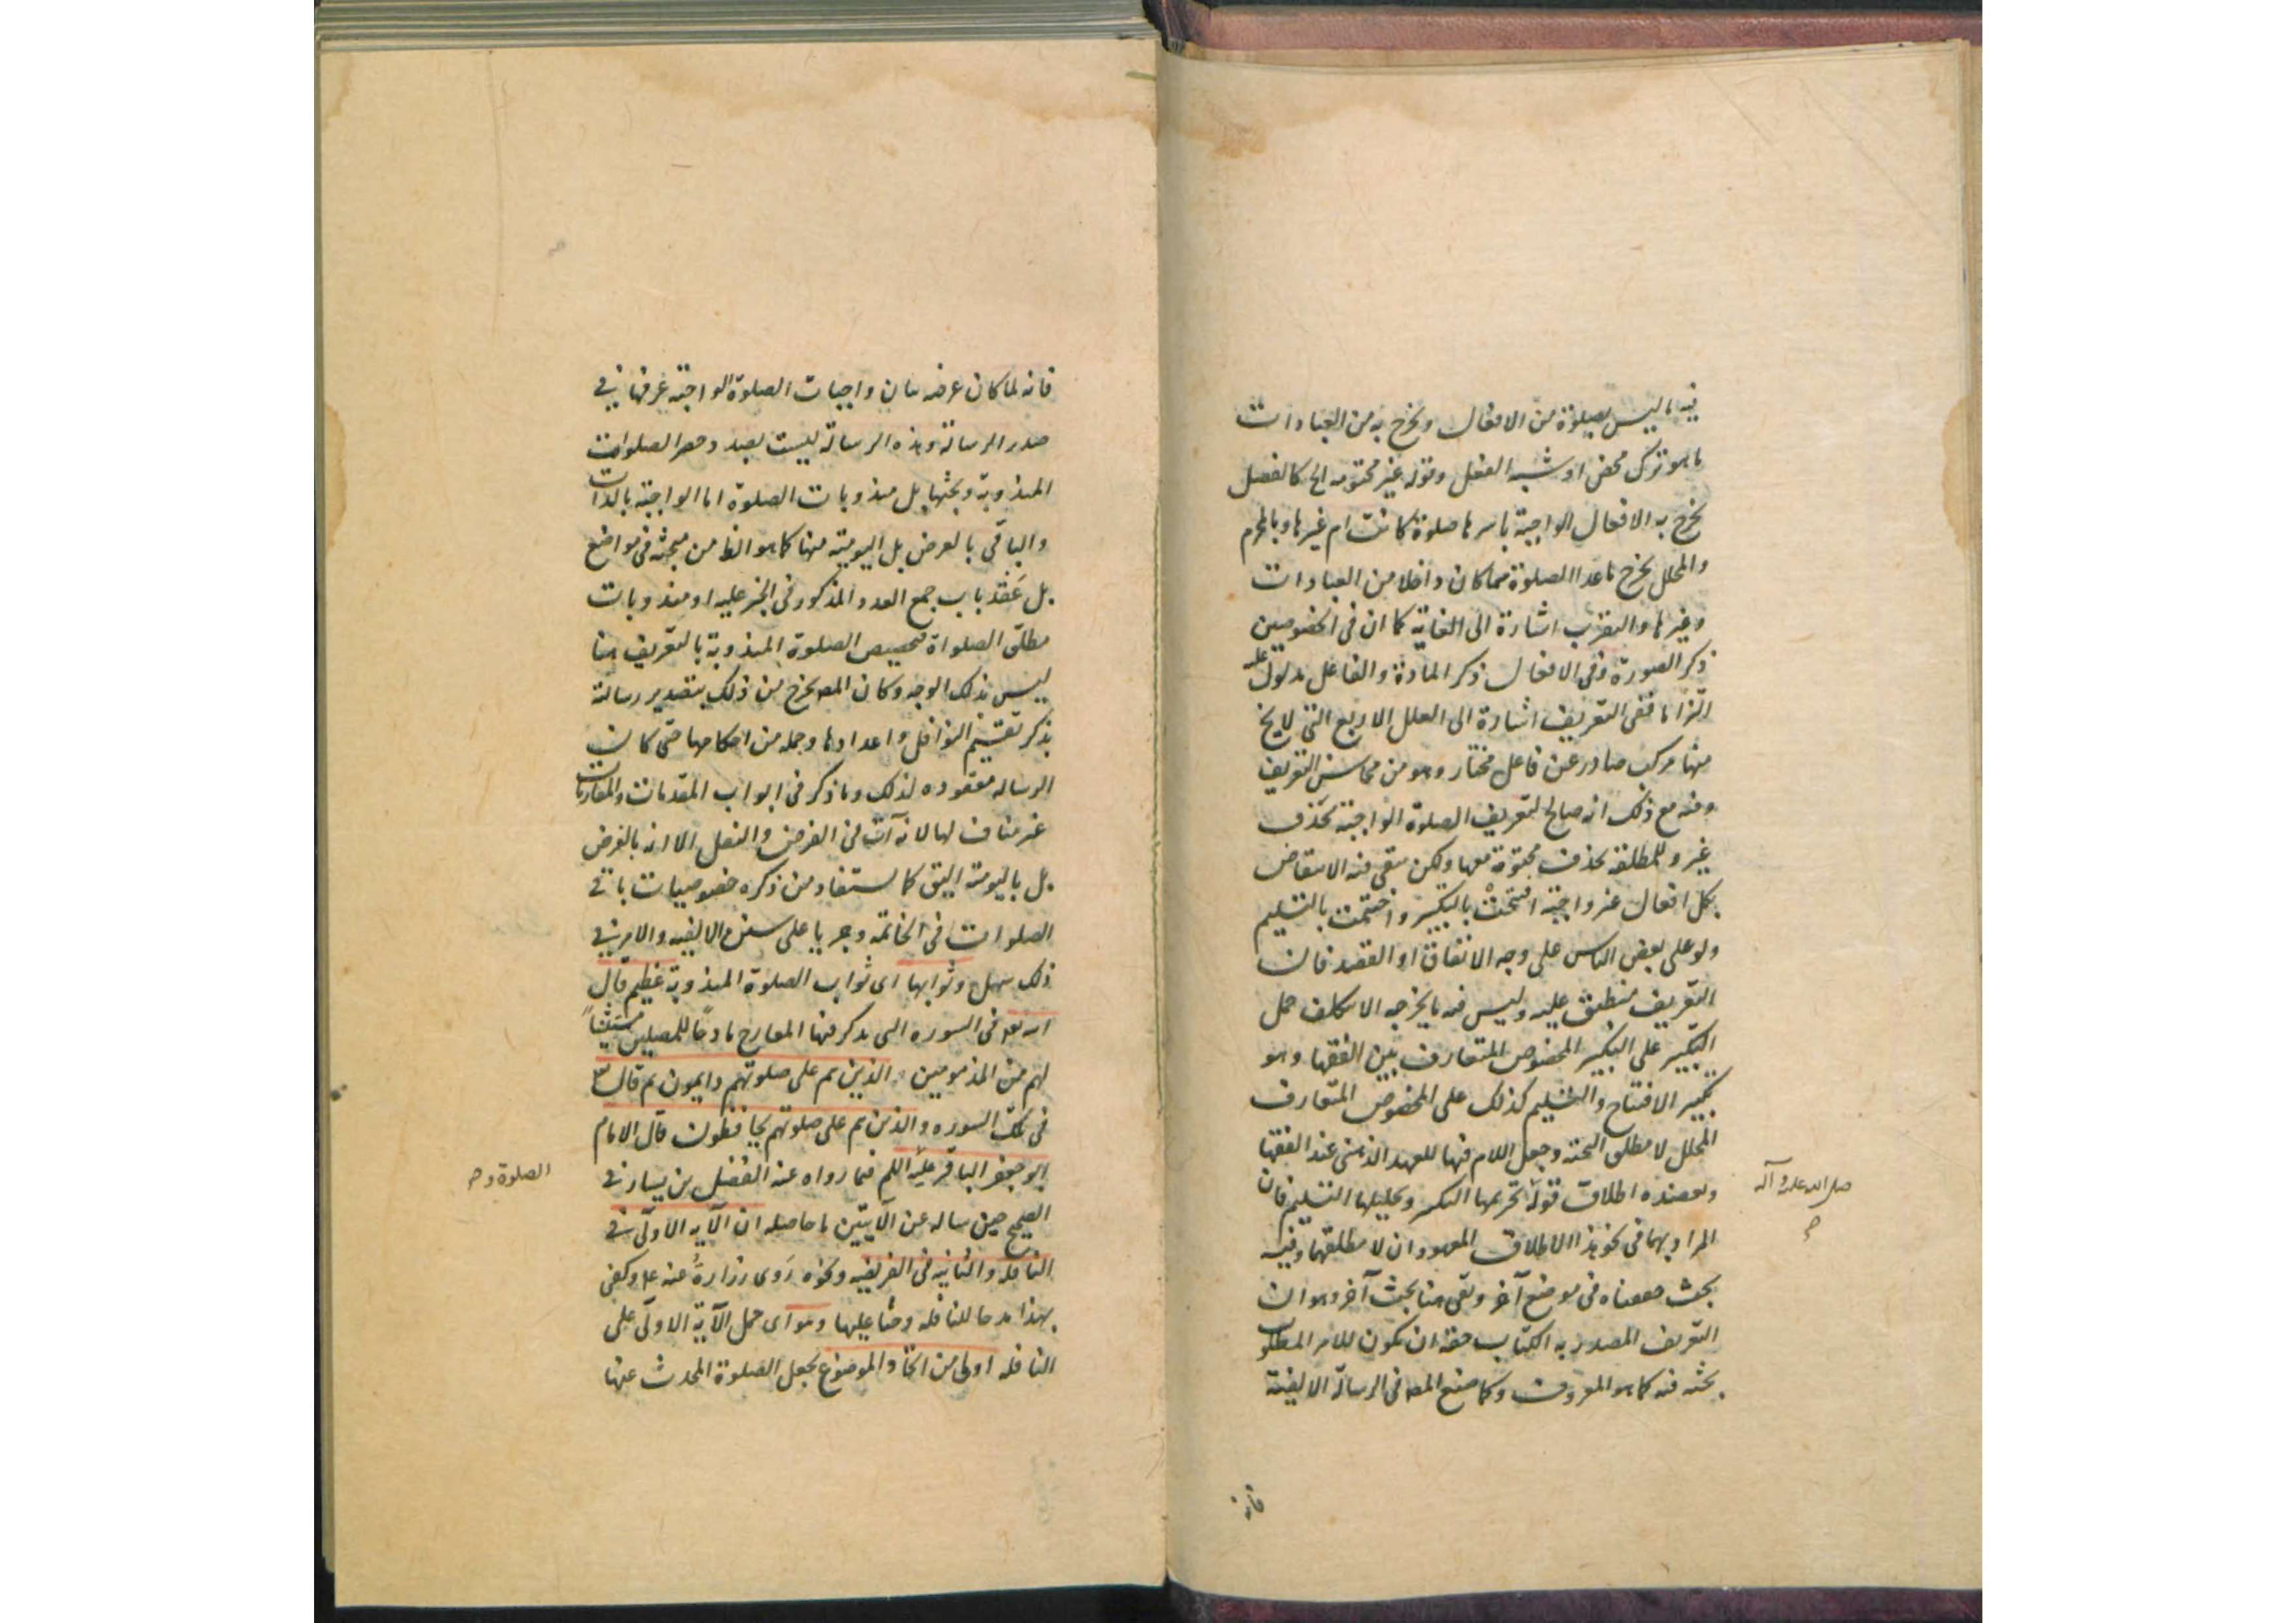 فيه ما ليس بصلوة من الافعال ويخرج به من العبادات
ما هو ترك محض او شبه الفعل وقوله غير محتومه الخ كالفصل
يخرج به الافعال الواجبة باسرها صلوة كانت ام غيرها وبالمحرم
والمحلل يخرج ما عدا الصلوة مما كان داخلا من العبادات
وغيرها والتقرب اشارة الى الغاية كما ان في الخصوصين
ذكر الصورة وفى الافعال ذكر المادة والفاعل مدلول عليه
التزاما ففى التعريف اشارة الى العلل الاربع التى لا يخ
منها مركب صادر عن فاعل مختار وهو من محاسن التعريف
وفيه مع ذلك انه صالح لتعريف الصلوة الواجبة بحذف
غير وللمطلقة بحذف محتومة معها ولكن يبقى فيه الانتقاض
بكل افعال غير واجبة افتتحت بالتكبير واختتمت بالتسليم
ولو على بعض الناس على وجه الاتفاق او القصد فان
التعريف منطبق عليه وليس فيه ما يخرجه الا بتكلف حمل
التكبير على التكبير المخصوص المتعارف بين الفقها وهو
تكبير الافتتاح والتسليم كذلك على المخصوص المتعارف
المحلل لا مطلق التحية وجعل اللام فيها للعهد الذهنى عند الفقها
ويعضده اطلاق قوله تحريمها التكبير وتحليلها التسليم فان
صلى الله عليه وآله
المراد بهما فى نحو هذا الاطلاق المعهودان لا مطلقهما وفيه
بحث حققناه فى موضع آخر وبقى هنا بحث آخر وهو ان
التعريف المصدر به الكتاب حقه ان يكون للامر المطلوب
بحثه فيه كما هو المعروف وكما صنع المص فى الرسالة الالفية
فانه
فانه لما كان غرضه بيان واجبات الصلوة الواجبة عرفها في
صدر الرسالة وهذه الرسالة ليست بصدد حصر الصلوات
المندوبة وبحثها بل مندوبات الصلوة اما الواجبة بالذات
والباقى بالعرض بل اليومية منها كما هو الظ من مبحثه فى مواضع
بل عقد باب جمع العدد المذكور فى الخبر عليه او مندوبات
مطلق الصلواة فتخصيص الصلوة المندوبة بالتعريف هنا
ليس بذلك الوجه وكان المص يخرج من ذلك بتصدير رسالته
بذكر تقسيم النوافل واعدادها وجمله من احكامها حتى كان
الرساله معقوده لذلك وما ذكر فى ابواب المقدمات والمقارنات
غير مناف لها لانه آت فى الفرض والنفل الا انه بالفرض
بل باليومية اليق كما يستفاد من ذكره خصوصيات باقى
الصلوات فى الخاتمه وجريا على سنن الالفيه والامر في
ذلك سهل وثوابها اى ثواب الصلوة المندوبة عظيم قال
الله تعالى فى السوره التى يذكر فيها المعارج مادحا للمصلين مستثنيا
لهم من المذمومين الذين هم على صلوتهم دايمون ثم قال
فى تلك السوره والذين هم على صلوتهم يحافظون قال الامام
ابو جعفر الباقر عليه السلم فيما رواه عنه الفضيل بن يسار فى
الصلوة و
الصحيح حين ساله عن الآيتين ما حاصله ان الآيه الاولى في
النافله والثانيه فى الفريضه ونحوه روى زرارة عنه ع وكفى
بهذا مدحا للنافله وحثا عليها وهو اى حمل الآية الاولى على
النافله اولى من اتحاد الموضوع بجعل الصلوة المحدث عنها